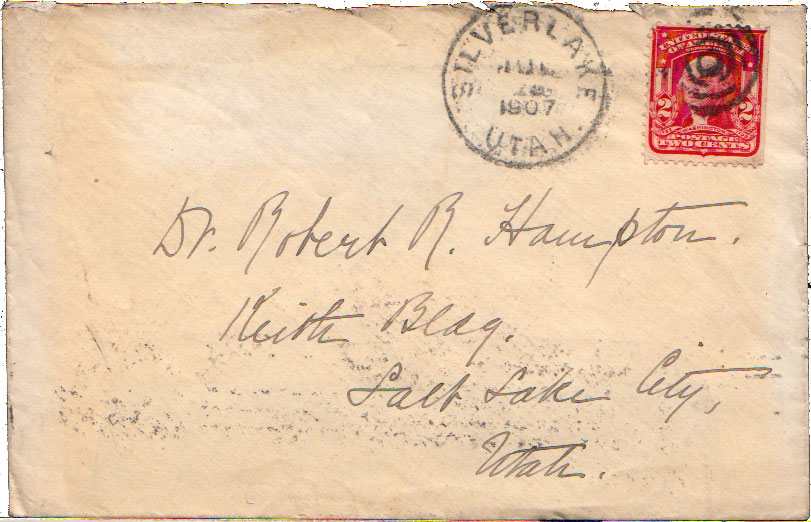 SILVERLAKE
1907
UTAH.
UNITED STATES
OF AMERICA
2 WASHINGTON 2
POSTAGE
TWO CENTS
Dr. Robert R. Hampton.
Keith Bldg.
Salt Lake City,
Utah.